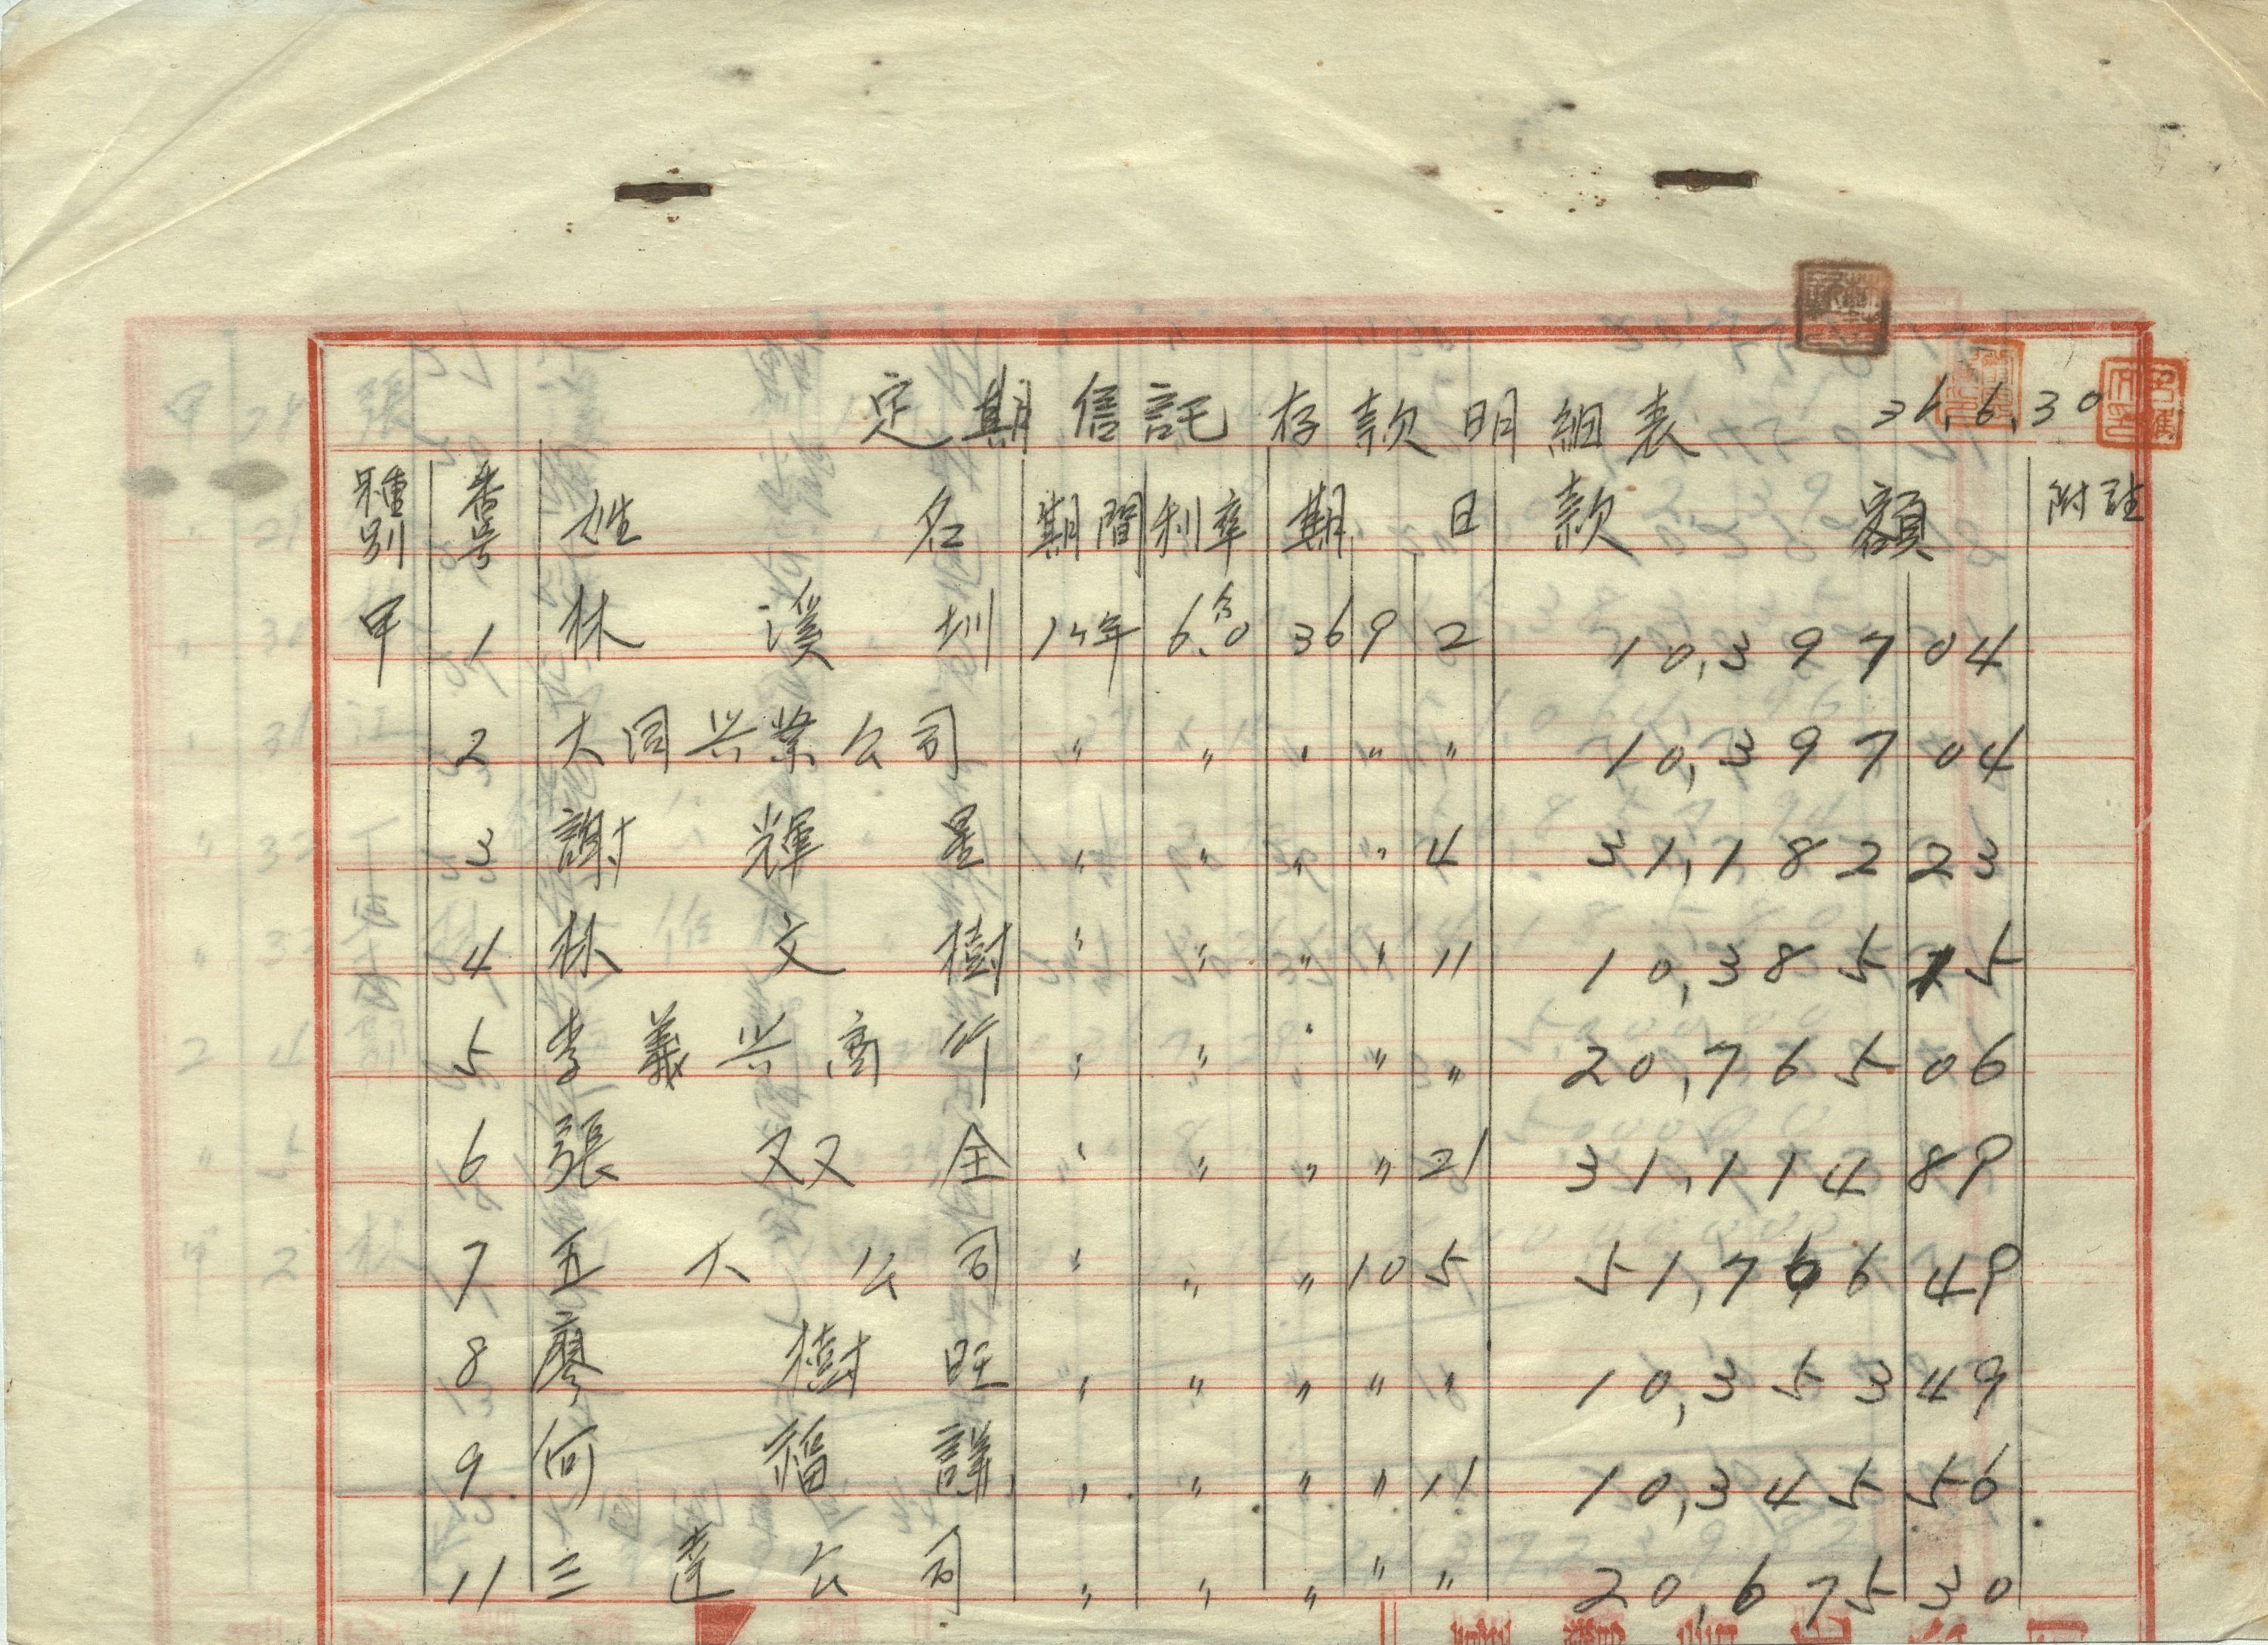 定期信託存款明細表 36.6.30
種別 番号 姓名 期間 利率 期日 款額 附註
甲 1 林溪圳 1ヶ年 6.60 36 9 2 10,397 04
2 大同兴業公司 〃 〃 〃 〃 〃 10,397 04
3 謝輝星 〃 〃 〃 〃 4 31,182 23
4 林文樹 〃 〃 〃 〃 11 10,385 15
5 李義兴商行 〃 〃 〃 〃 〃 20,765 06
6 張双全 〃 〃 〃 〃 21 31,114 89
7 五大公司 〃 〃 〃 10 5 51,766 49
8 廖樹旺 〃 〃 〃 〃 〃 10,353 49
9 何福謀 〃 〃 〃 〃 11 10,345 56
11 三達公司 〃 〃 〃 〃 〃 20,675 30